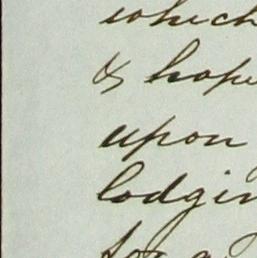 which
& hope
upon
lodgin
for a